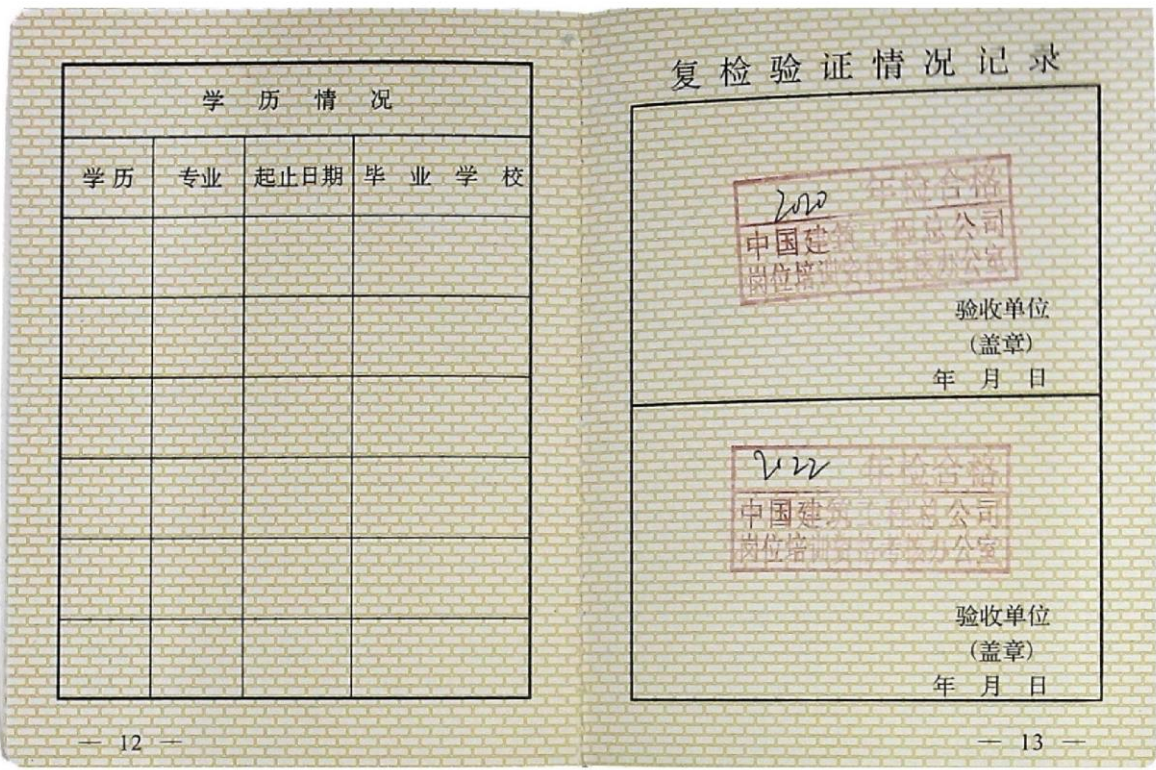 学历情况
学历 专业 起止日期 毕业学校
— 12 —
复检验证情况记录
2020 年检合格
中国建筑工程总公司
岗位培训资格考核办公室
验收单位
(盖章)
年 月 日
2022 年检合格
中国建筑工程总公司
岗位培训资格考核办公室
验收单位
(盖章)
年 月 日
— 13 —